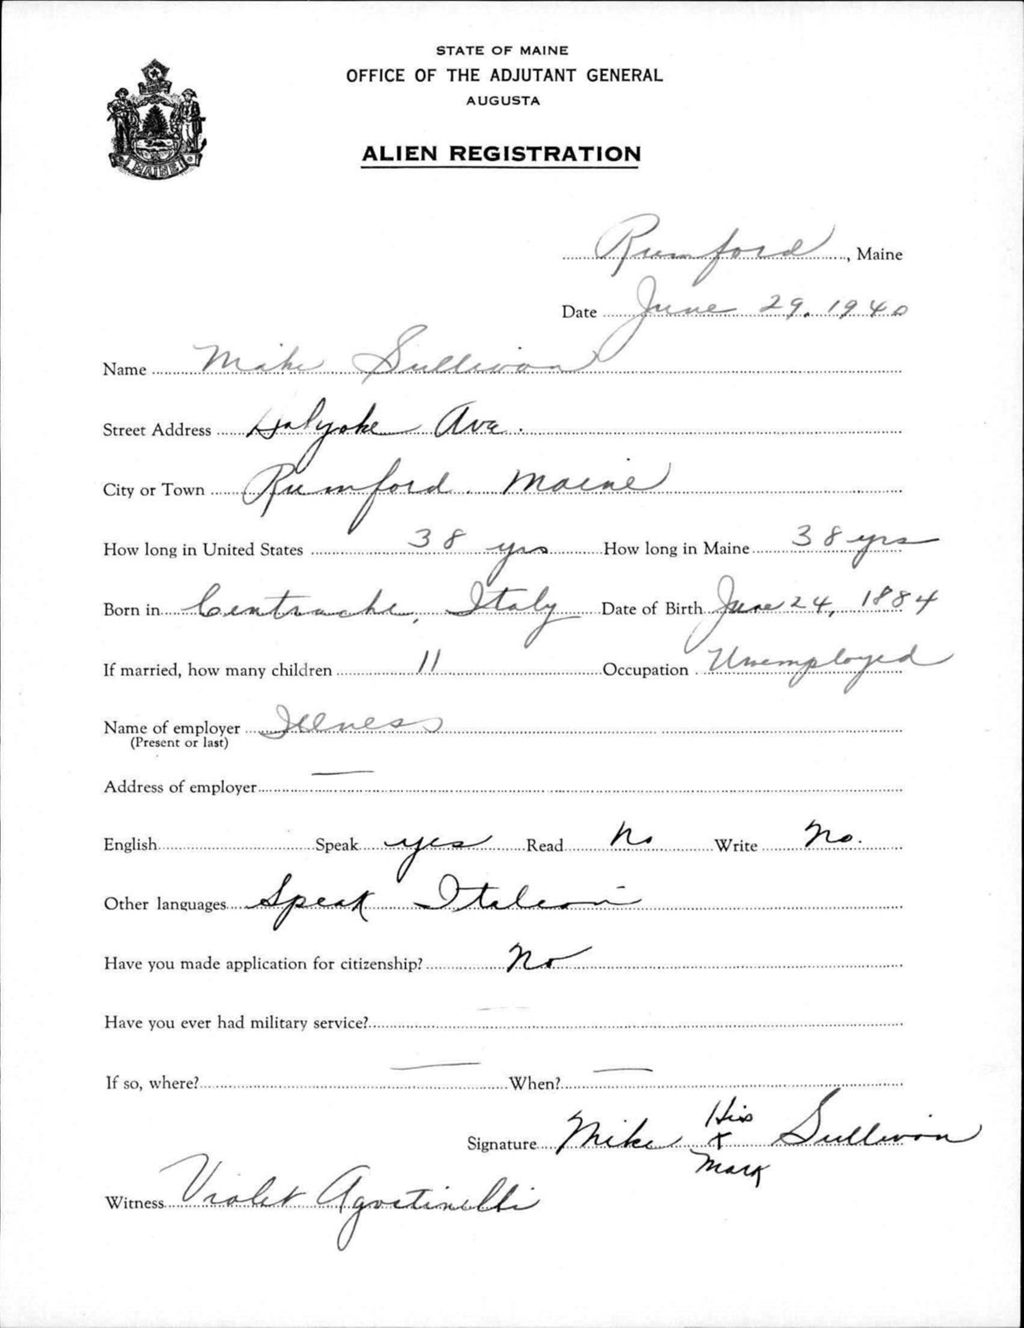 STATE OF MAINE
OFFICE OF THE ADJUTANT GENERAL
AUGUSTA
ALIEN REGISTRATION
MAINE
Rumford, Maine
Date June 29, 1940
Name Mike Sullivan
Street Address Holyoke Ave.
City or Town Rumford Maine
How long in United States 38 yrs How long in Maine 38 yrs
Born in Centrache, Italy Date of Birth June 24, 1884
If married, how many children 11 Occupation Unemployed
Name of employer Illness
(Present or last)
Address of employer —
English Speak yes Read No Write No.
Other languages Speak Italian
Have you made application for citizenship? No
Have you ever had military service? —
If so, where? — When? —
His
Signature Mike X Sullivan
Mark
Witness Violet Agostinelli